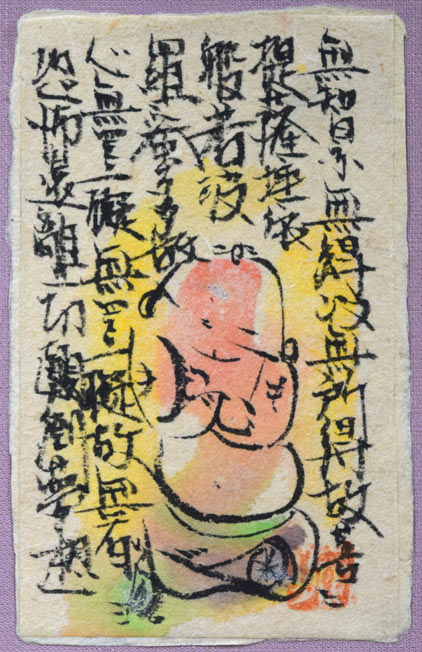 無智亦無得以無所得故菩
提薩埵依
般若波
羅蜜多故
心無罣礙無罣礙故無有
恐怖遠離一切顛倒夢想